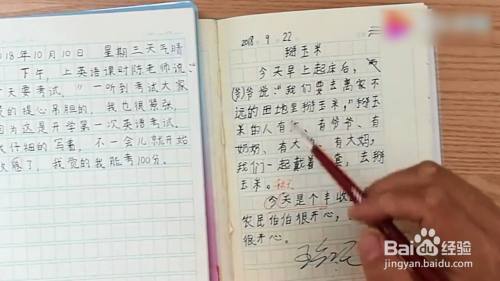 2018年10月10日 星期三天气晴
下午，上英语课时陈老师说
天要考试。"一听到考试大家
的提心吊胆的，我也很紧张，
因为这是开学第一次英语考试。
大仔细的写着，不一会儿就开始
收卷了，我觉的我能考100分。
2018.9.22
掰玉米
今天早上起床后，
爷爷说："我们要去离家不
远的田地里掰玉米，"掰玉
米的人有 有爷爷、有
奶奶、有大 、有大妈，
我们一起戴着 套，去掰
玉米。
今天是个丰收
农民伯伯很开心，
很开心。
Baidu 经验
jingyan.baidu.com